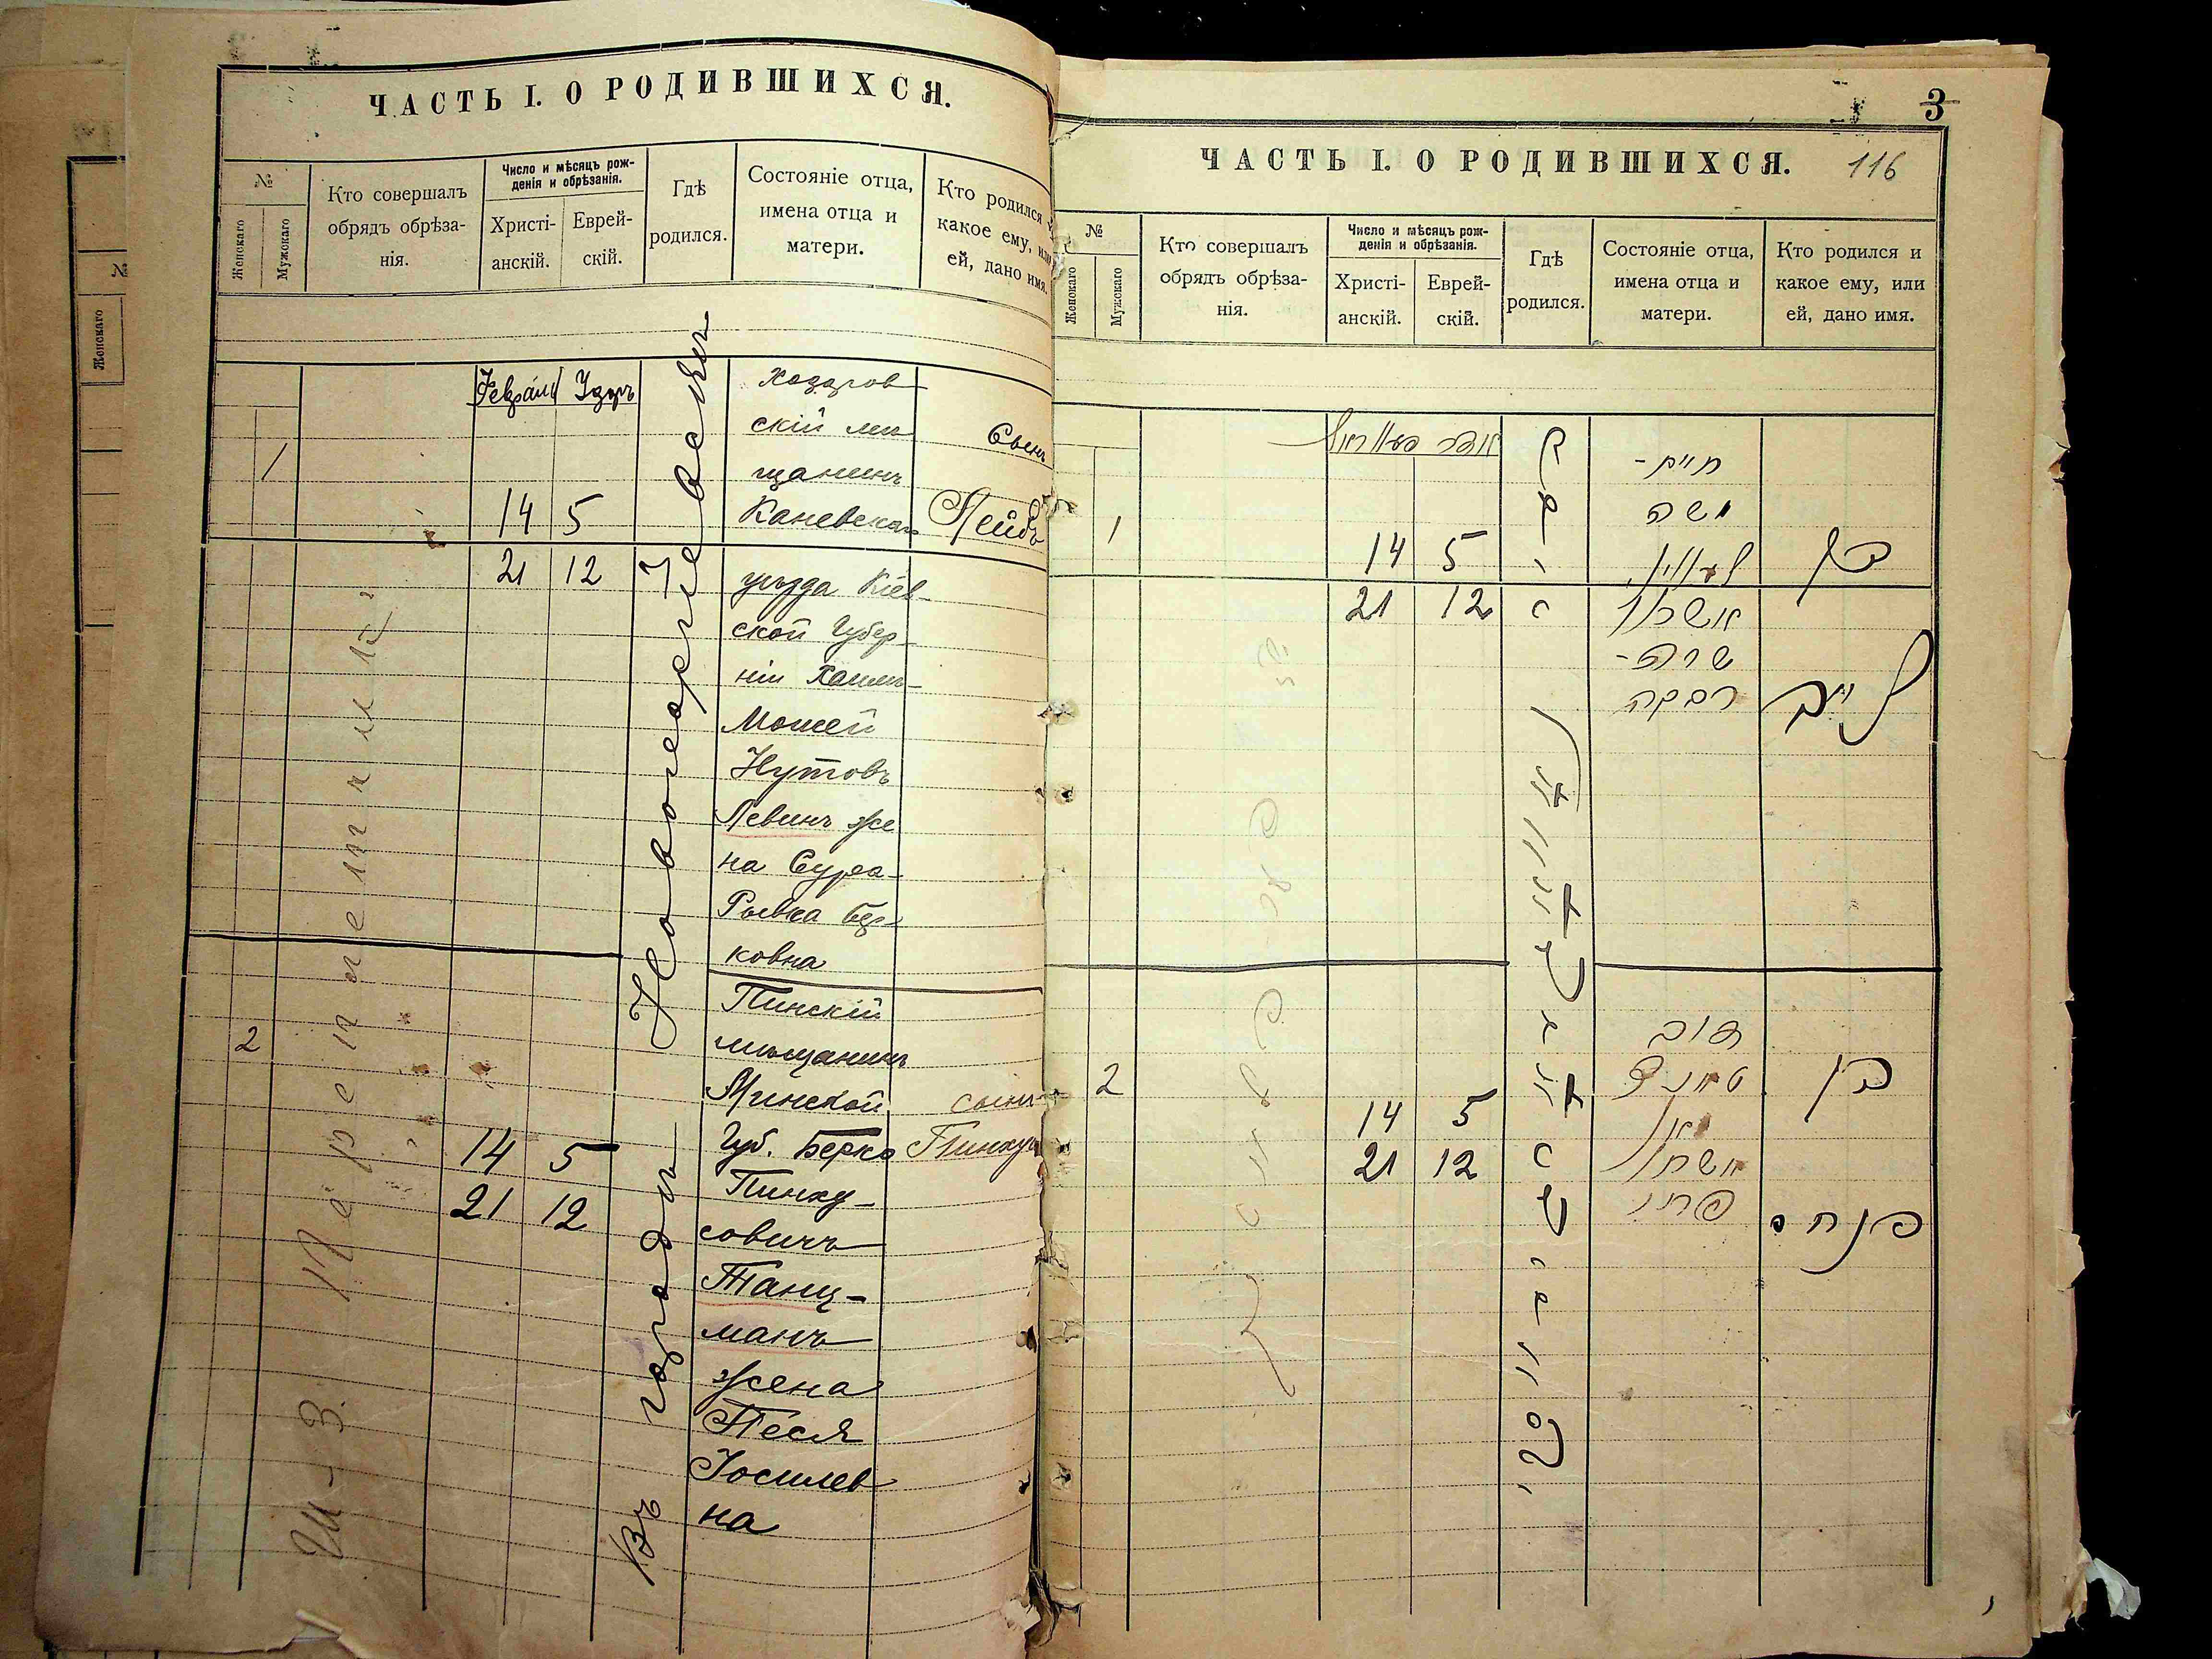 ЧАСТЬ I. О РОДИВШИХСЯ.
№
Женскаго
Мужскаго
Кто совершалъ
обрядъ обрѣза-
нія.
Число и мѣсяцъ рож-
денія и обрѣзанія.
Христі-
анскій.
Еврей-
скій.
Гдѣ
родился.
Состояніе отца,
имена отца и
матери.
Кто родился
какое ему, или
ей, дано имя.
Февраль
1
14 5
21 12
скій мѣ
щанинъ
Каневскаго
уѣзда Кіев-
ской Губер-
ніи Хаимъ-
Мошей
Нутовъ
Левинъ же
на Сура-
Рывка Бер-
ковна
Сынъ
Лейбъ
Въ городѣ Новогеоргіевскѣ
2
14 5
21 12
Пинскій
мѣщанинъ
Минской
Губ. Берко
Пинху-
совичъ
Танц-
манъ
жена
Песя
Іосилев
на
сынъ
Пинхус
3
116
ЧАСТЬ I. О РОДИВШИХСЯ.
№
Женскаго
Мужскаго
Кто совершалъ
обрядъ обрѣза-
нія.
Число и мѣсяцъ рож-
денія и обрѣзанія.
Христі-
анскій.
Еврей-
скій.
Гдѣ
родился.
Состояніе отца,
имена отца и
матери.
Кто родился и
какое ему, или
ей, дано имя.
1
14 5
21 12
חיים-
משה
לעווין
אשתו
שרה-
רבקה
בן
לייב
2
14 5
21 12
אשתו
בן
פנחס